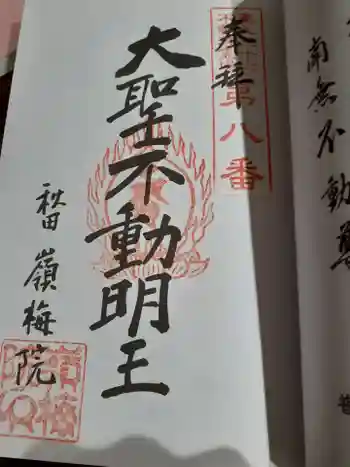 奉拝
第八番
大聖不動明王
秋田 嶺梅院
南無不動